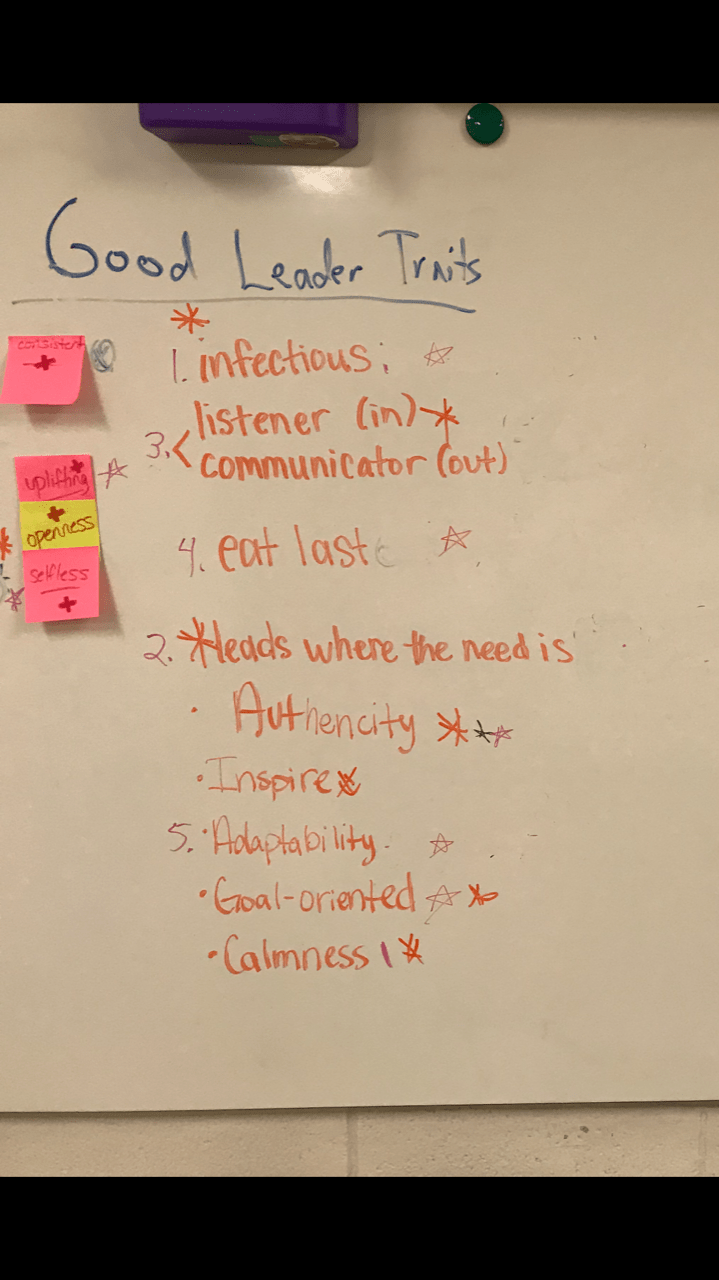 Good Leader Traits
consistent
1. infectious;
3. < listener (in)
communicator (out)
uplifting
openness
selfless
4. eat last
2. leads where the need is
· Authencity
· Inspire
5. · Adaptability.
· Goal-oriented
· Calmness